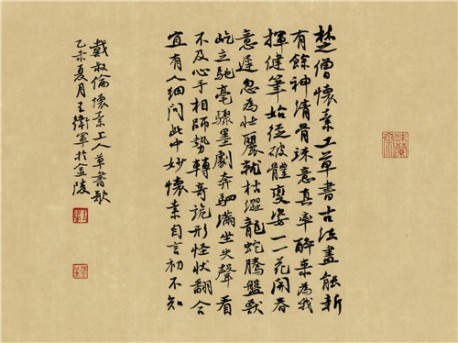 楚僧懷素工草書古法盡能新
有餘神清骨竦意真率醉来為我
揮健筆始從破體變姿一一花開春
意遲忽為壯麗就枯澀龍蛇騰盤獸
屹立馳毫驟墨劇奔駟滿坐失聲看
不及心手相師勢轉奇詭形怪狀翻合
宜有人細問此中妙懷素自言初不知
戴叔倫懷素上人草書歌
乙未夏月王衛軍於金陵